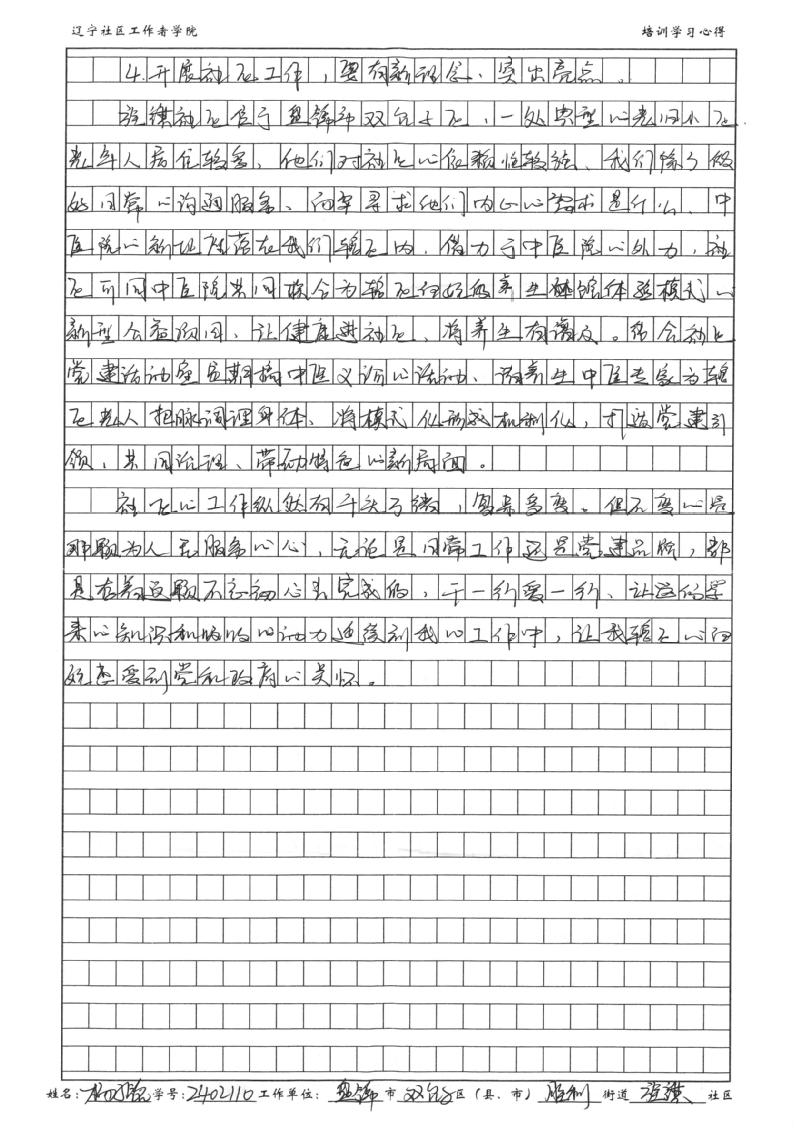 辽宁社区工作者学院 培训学习心得
4.开展社区工作，要有新理念、突出亮点。
社区位于盘锦市双台子区，一处典型的老旧小区
老年人居住较多，他们对社区的依赖性较强，我们除了做
好日常的沟通服务、向来寻求他们内心的需求是什么、中
医院的新地址落在我们辖区内，借力于中医院的外力，社
区可同中医院共同核合为辖区体验模式的
新型公益项目、让健康进社区，将养生有普及。结合社区
党建活动室定期搞中医义诊的活动、请养生中医专家为辖
区老人把脉调理身体、将模式化形成机制化，打造党建引
领，共同治理、带动特色的新局面。
社区的工作纵然有千头万绪，复杂多变。但不变的是
那颗为人民服务的心，无论是日常工作还是党建品牌，都
是在有这颗不忘初心去完成的，干一行爱一行、让这份学
来的知识和吸收的动力延续到我的工作中，让我辖区的居
民感受到党和政府的关怀。
姓名： 学号：2402110 工作单位：盘锦 市 双台子 区（县、市） 胜利 街道 社区